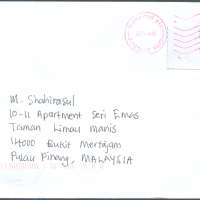 M. Shahirasul
10-11 Apartment Seri Emas
Taman Limau Manis
14000 Bukit Mertajam
Pulau Pinang, MALAYSIA